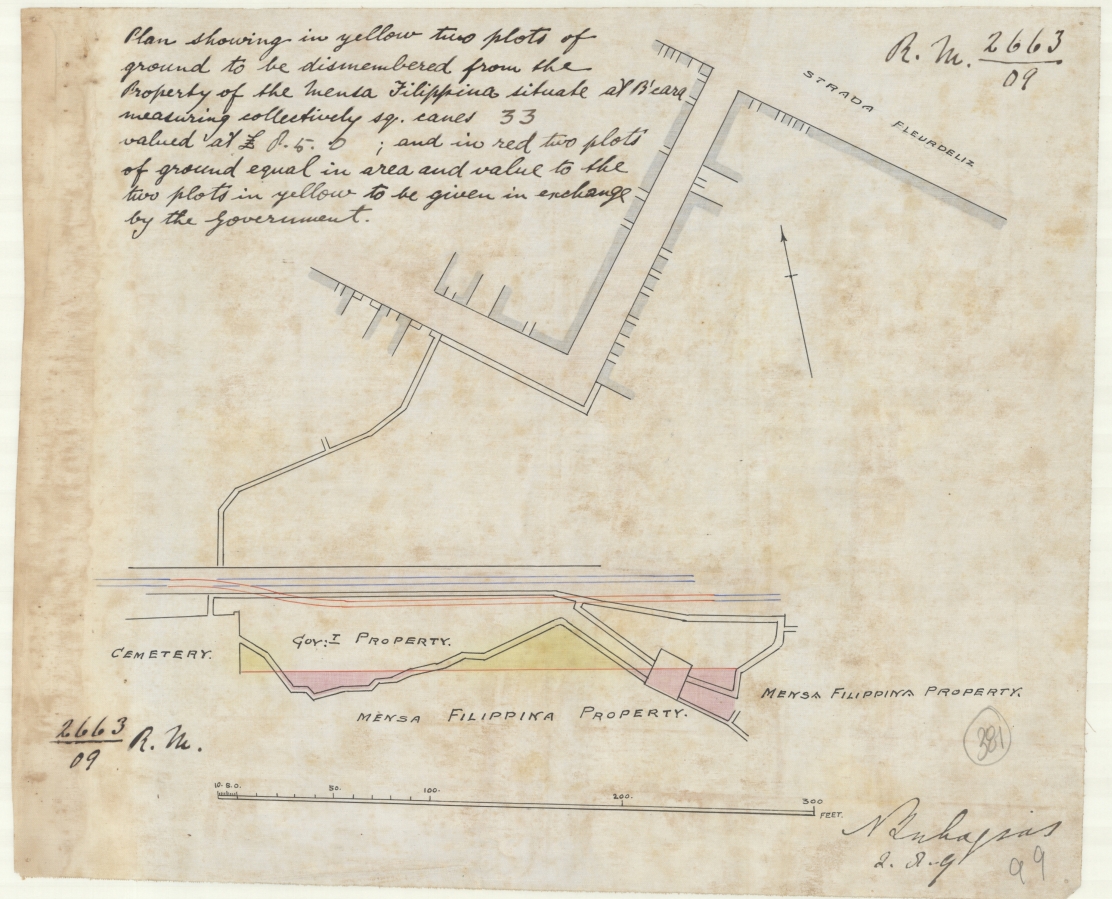 Plan showing in yellow two plots of
ground to be dismembered from the
Property of the Mensa Filippina situate at B'cara
measuring collectively sq. canes 33
valued at £ 8. 5. 0 ; and in red two plots
of ground equal in area and value to the
two plots in yellow to be given in exchange
by the Government.
R. M. 2663
09
STRADA FLEURDELIZ
GOV:T PROPERTY.
CEMETERY.
MENSA FILIPPINA PROPERTY.
MENSA FILIPPINA PROPERTY.
2663 R. M.
09
381
10. 5. 0. 50. 100. 200. 300
FEET.
2. 8. 9
99